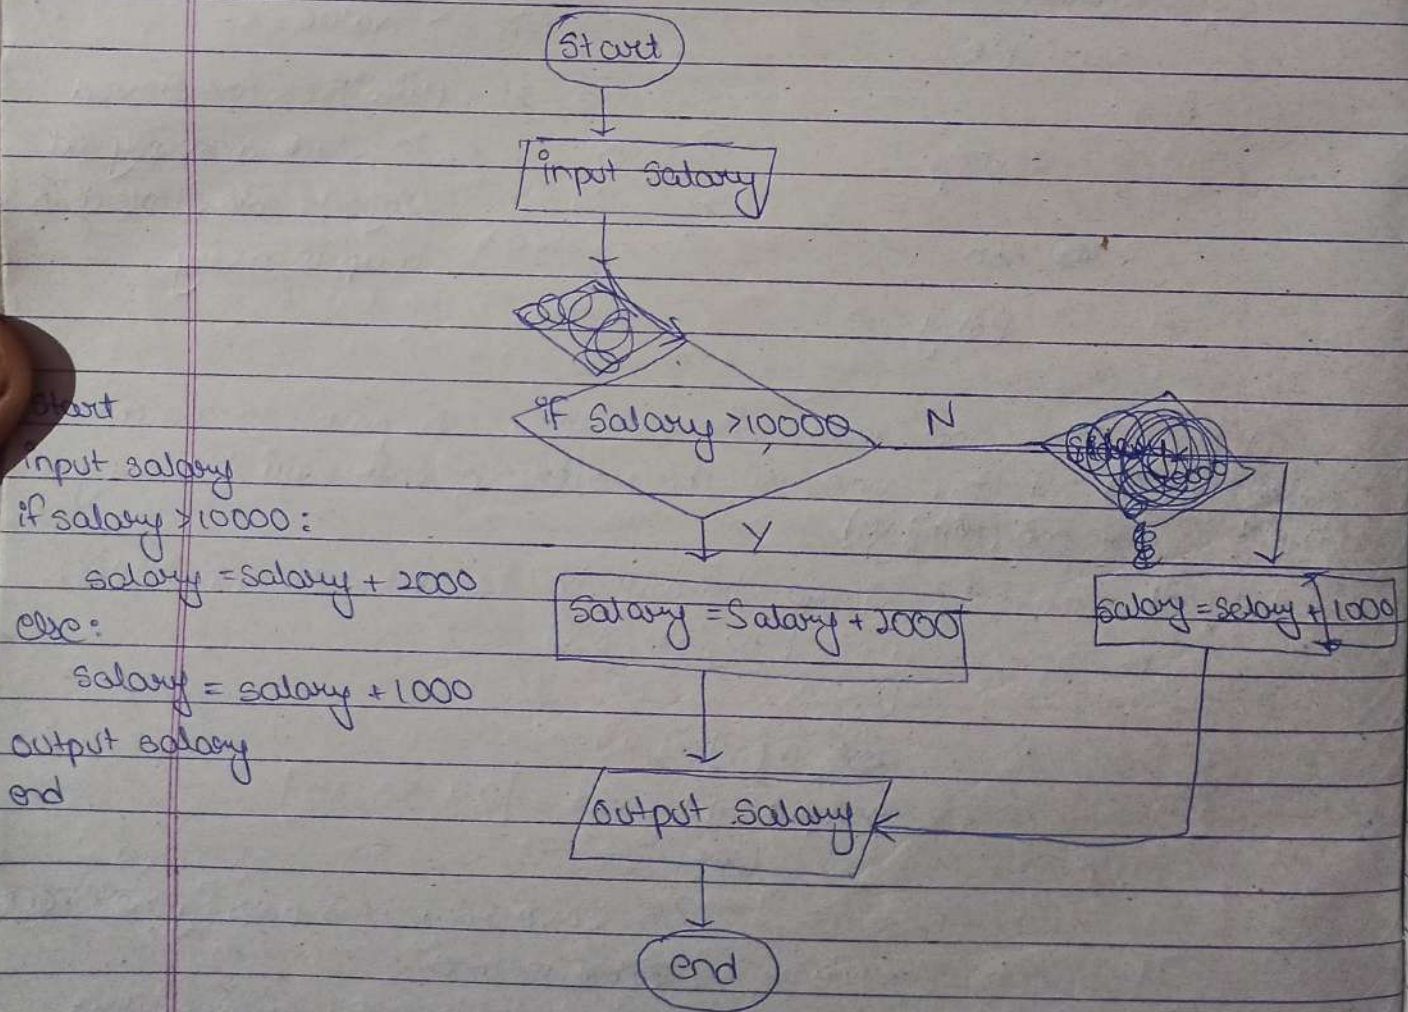 Start
input salary
if salary >10000
N
Y
salary = salary + 2000
salary = salary + 1000
output salary
end
start
input salary
if salary >10000:
salary = salary + 2000
else:
salary = salary + 1000
output salary
end